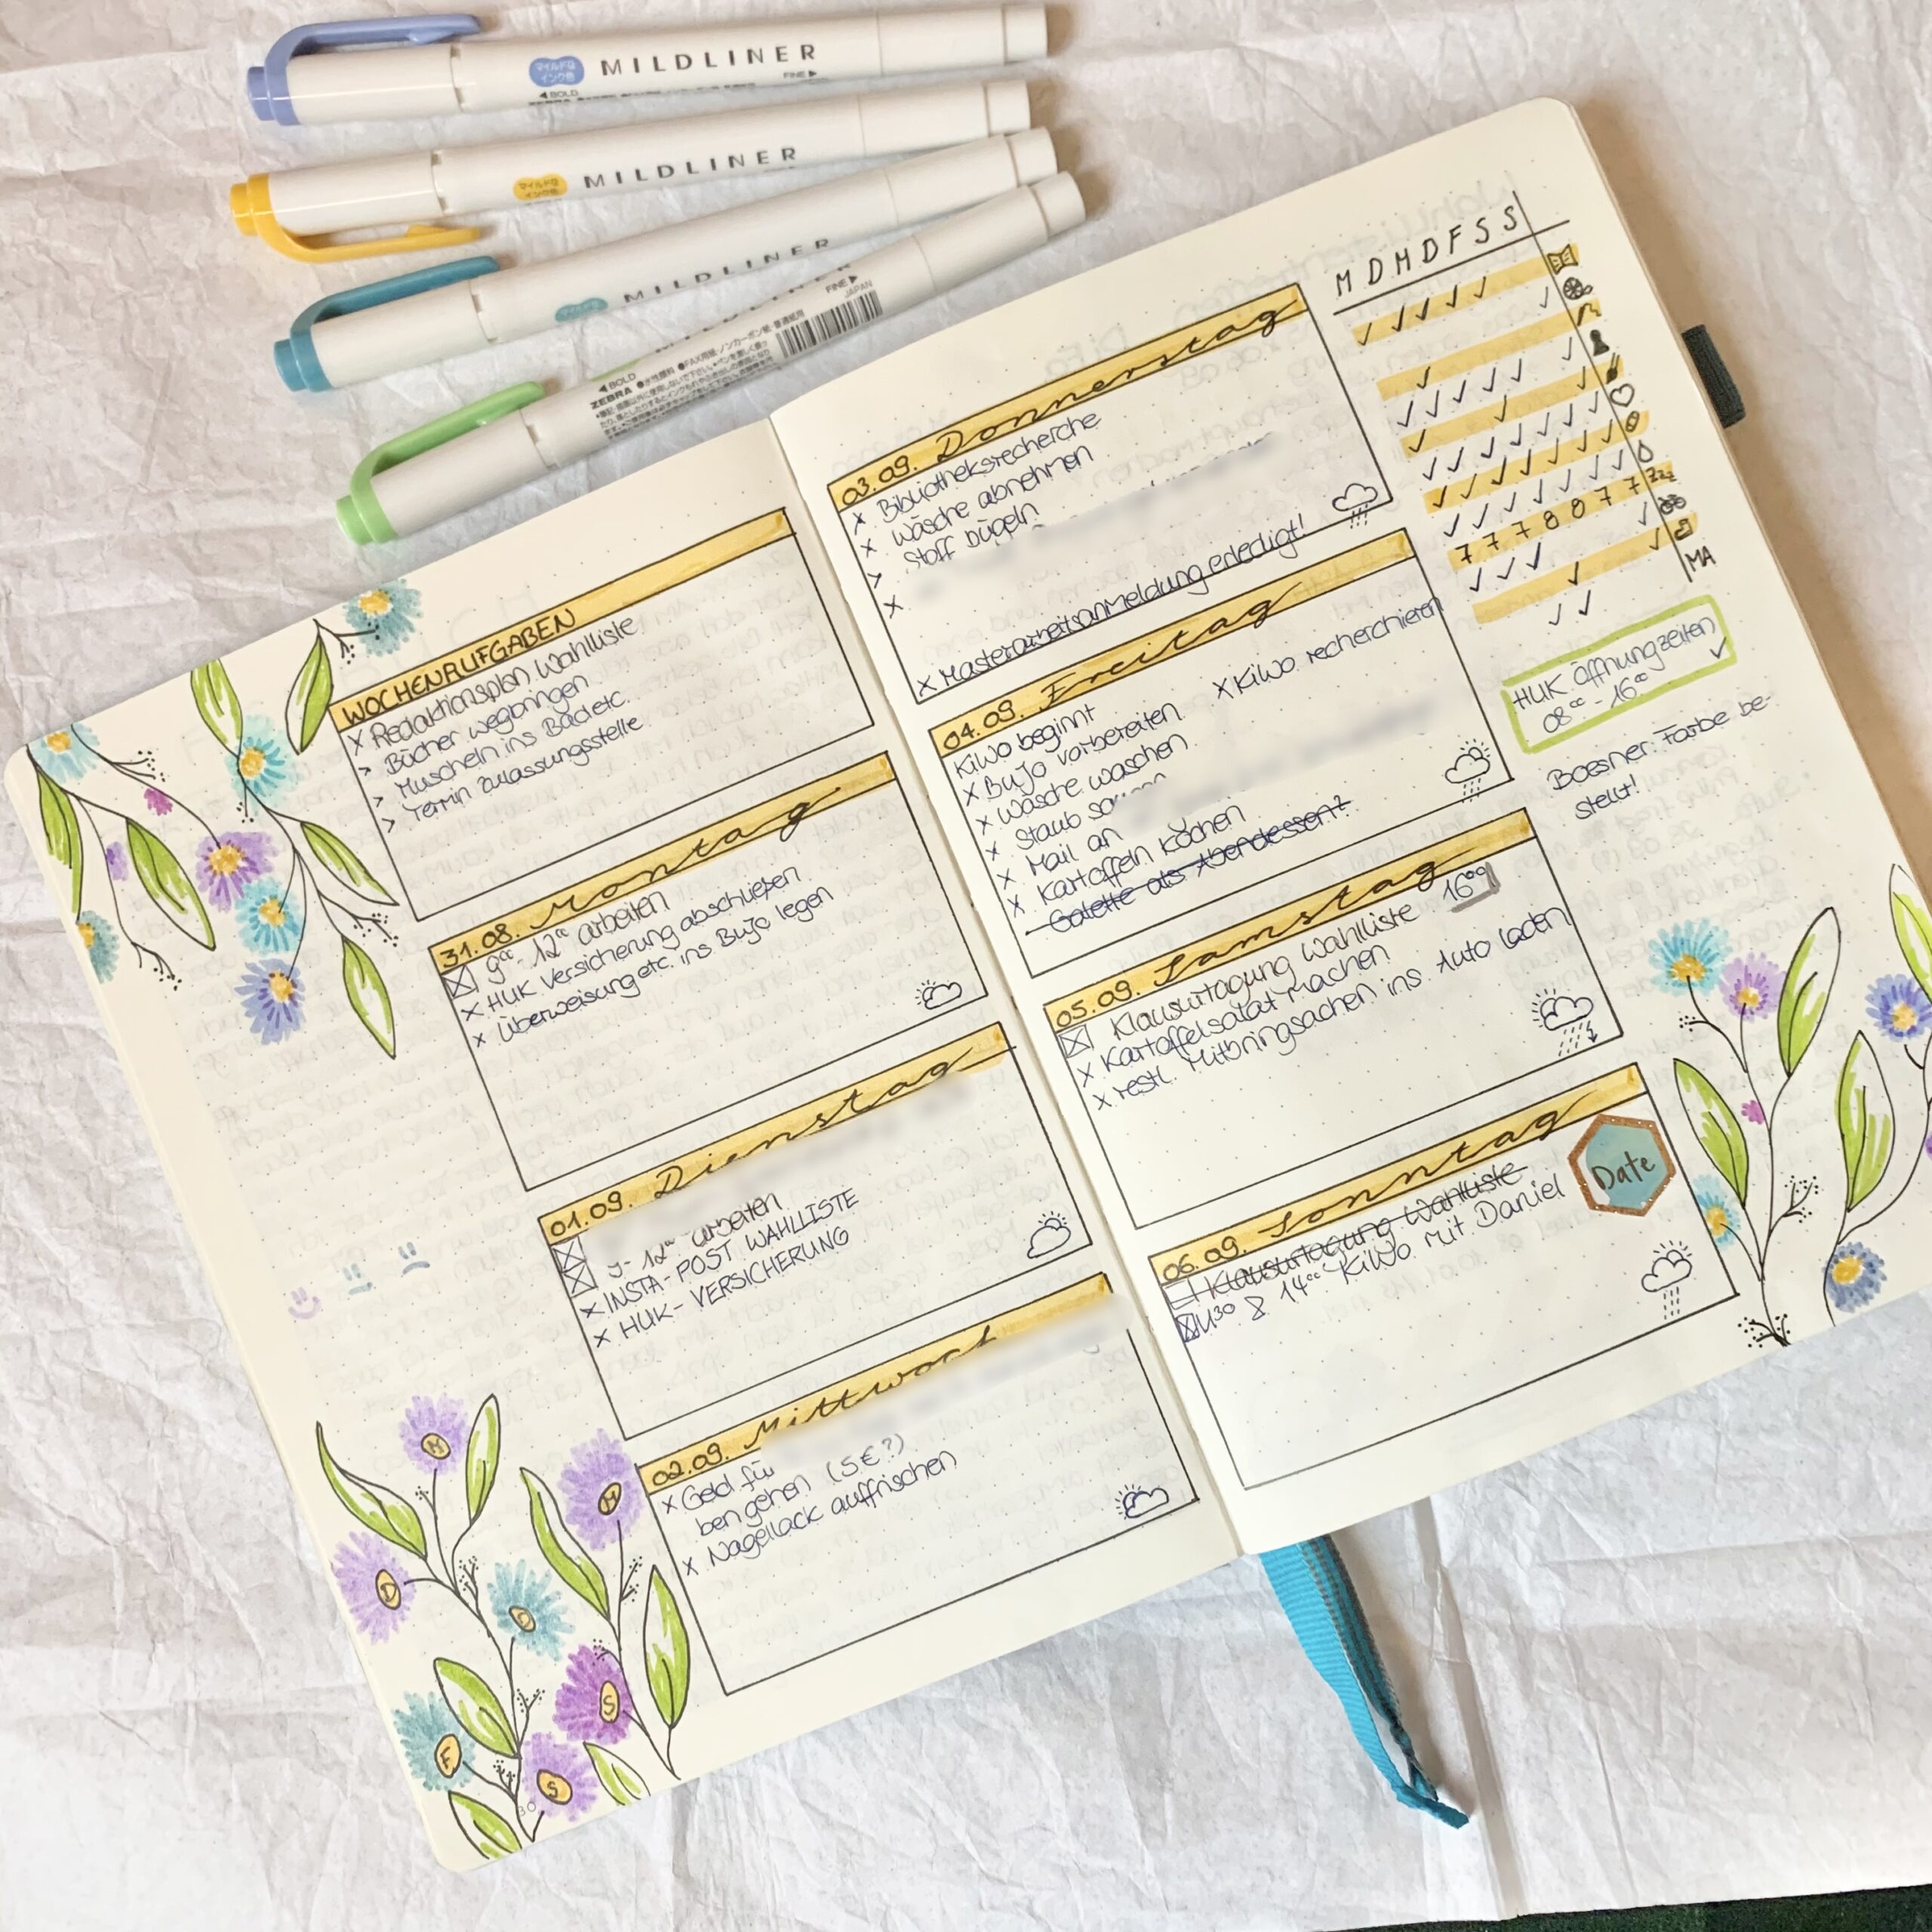 マイルドな
インク色
MILDLINER
◀BOLD
FINE▶
マイルドな
インク色
MILDLINER
マイルドな
インク色
MILDLINER
MILDLINER
◀BOLD
FINE▶
ZEBRA
JAPAN
WOCHENAUFGABEN
x Redaktionsplan Wahlliste
> Bücher wegbringen
> Muscheln ins Bad etc.
> Termin Zulassungsstelle
31.08. Montag
9⁰⁰- 12⁰⁰ arbeiten
x HUK Versicherung abschließen
x Überweisung etc. ins BuJo legen
01.09. Dienstag
9- 12⁰⁰ arbeiten
x INSTA-POST WAHLLISTE
x HUK-VERSICHERUNG
02.09. Mittwoch
x Geld für
ben gehen (5€?)
x Nagellack auffrischen
M
M
D
D
S
F
S
30
03.09. Donnerstag
x Bibliotheksrecherche
x Wäsche abnehmen
> Stoff bügeln
x
x Masterarbeitsanmeldung erledigt!
04.09. Freitag
KiWo beginnt
x BuJo vorbereiten
x KiWo recherchieren
x Wäsche waschen
x Staub
x Mail an
x Kartoffeln kochen
- Galette als Abendessen?
05.09. Samstag
Klausurtagung Wahlliste 16⁰⁰
x Kartoffelsalat machen
x restl. Mitbringsachen ins Auto laden
06.09. Sonntag
Klausurtagung Wahlliste
14⁰⁰ KiWo mit Daniel
Date
M D M D F S S
zzz
7 7 7 8 8 7 7
MA
HUK Öffnungzeiten
08⁰⁰ - 16⁰⁰ ✓
Boesner: Farbe be-
stellt!